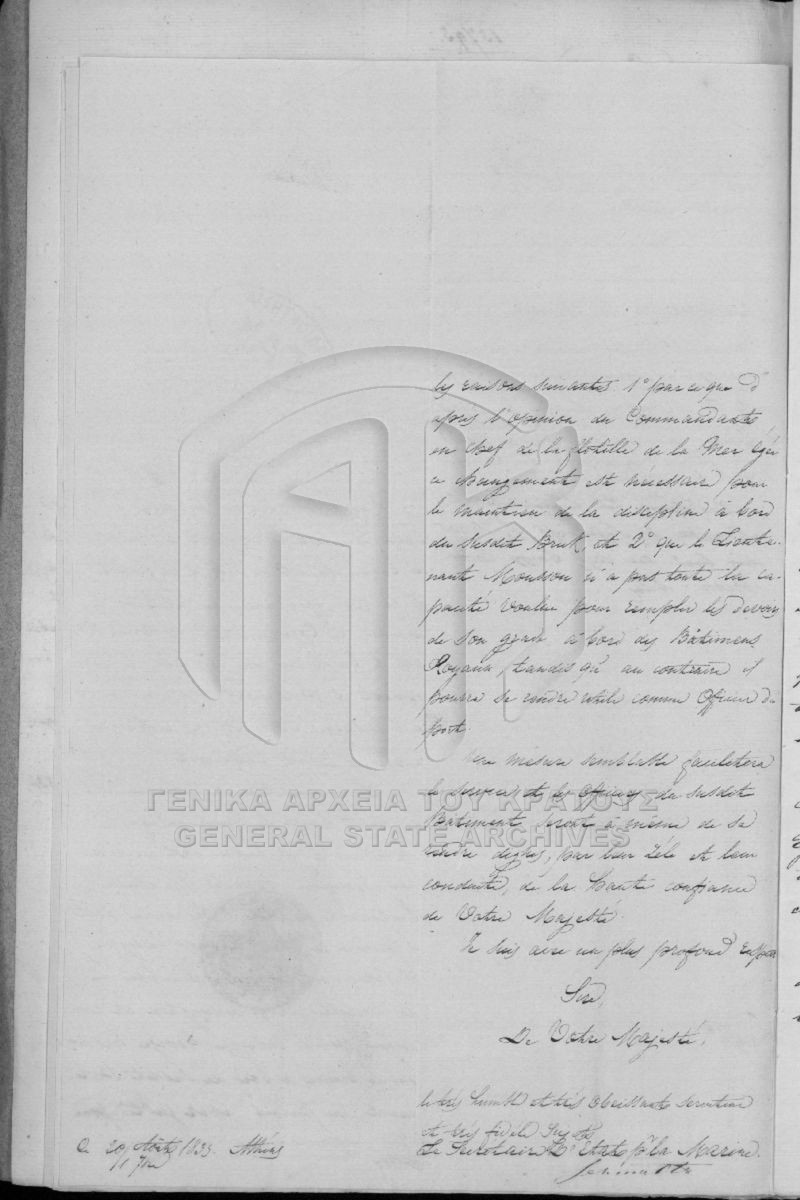 les raisons suivantes 1° parceque d'
apres l'opinion du Commandante
en chef de la flotille de la Mer Egée
ce changement est nécessaire pour
le maintien de la discipline à bord
du susdit Brick, et 2° que le Lieute-
nant n'a pas toute la ca-
pacité voulue pour remplir les devoirs
de son grade à bord des Bâtimens
Royaux, tandis qu'au contraire il
pourra se rendre utile comme Officier de
port.
Une mesure semblable facilitera
le service et les Officiers du susdit
Bâtiment seront à même de se
rendre dignes, par leur zèle et leur
conduite, de la haute confiance
de Votre Majesté.
Je suis avec un plus profond respect
Sire,
De Votre Majesté,
le très humble et très obeissant serviteur
et très fidele Sujet
Le Secretaire d'Etat pr la Marine
Ce 1833 Athènes
ΓΕΝΙΚΑ ΑΡΧΕΙΑ ΤΟΥ ΚΡΑΤΟΥΣ
GENERAL STATE ARCHIVES